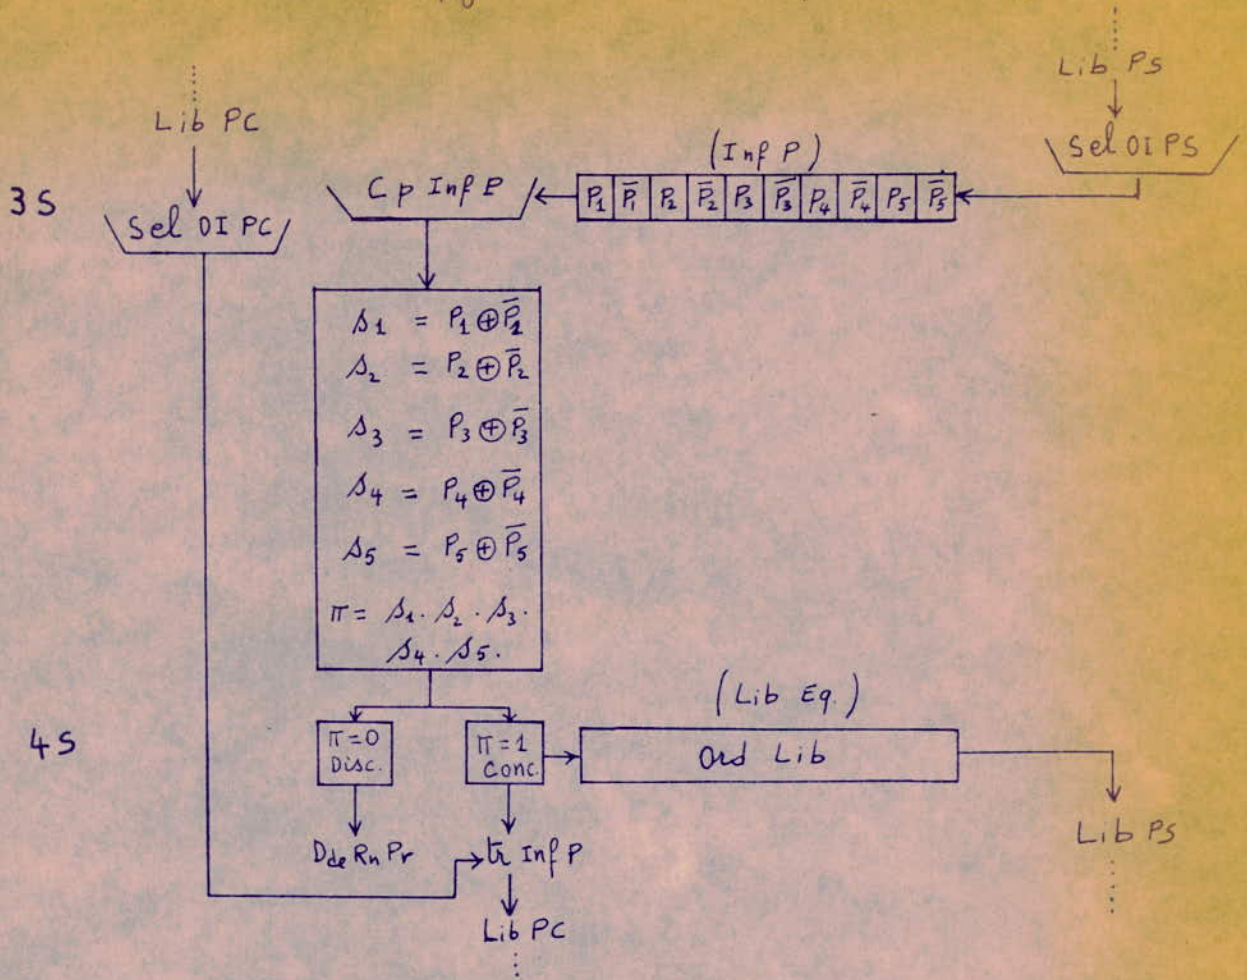 Lib PS
Lib PC
Sel OI PS
(Inf P)
3S
Cp Inf P
P₁ P̅₁ P₂ P̅₂ P₃ P̅₃ P₄ P̅₄ P₅ P̅₅
Sel OI PC
s₁ = P₁ ⊕ P̅₁
s₂ = P₂ ⊕ P̅₂
s₃ = P₃ ⊕ P̅₃
s₄ = P₄ ⊕ P̅₄
s₅ = P₅ ⊕ P̅₅
π = s₁. s₂. s₃.
s₄. s₅.
(Lib Eq.)
4S
π=0
Disc.
π=1
Conc.
Ord Lib
Lib PS
Dde Rn Pr
tr Inf P
Lib PC